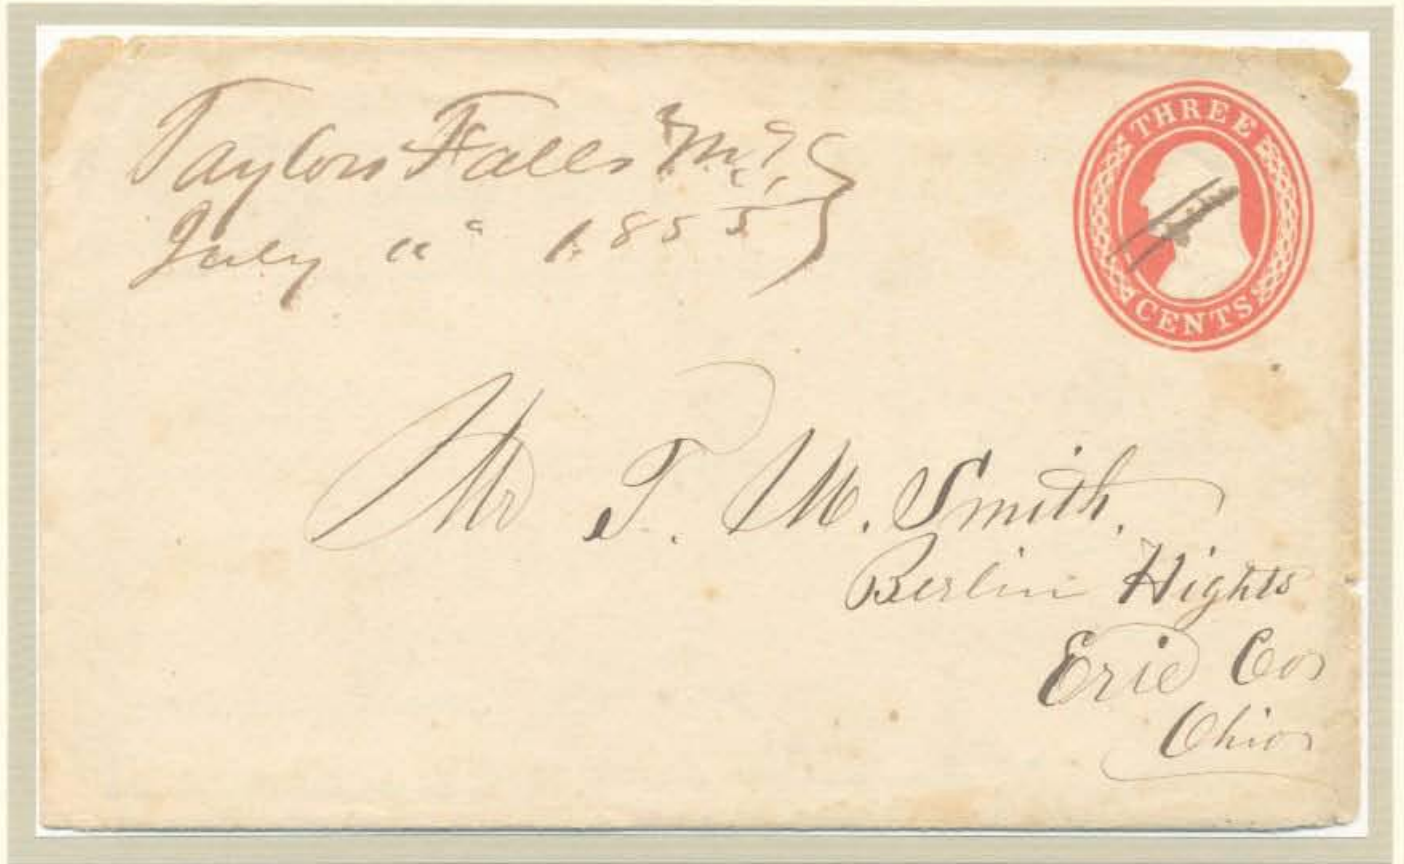 Taylors Falls M.T.
July 11" 1855
THREE
CENTS
Mr T. M. Smith.
Berlin Hights
Erie Co
Ohio